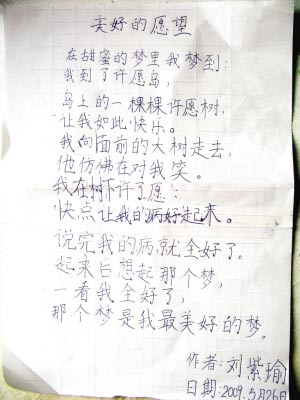 美好的愿望
在甜蜜的梦里我梦到:
我到了许愿岛,
岛上的一棵棵许愿树,
让我如此快乐。
我向面前的大树走去,
他仿佛在对我笑。
我在树下许了愿:
快点让我的病好起来。
说完我的病就全好了。
起来后想起那个梦,
一看我全好了,
那个梦是我最美好的梦。
作者:刘紫瑜
日期:2009.5月26日